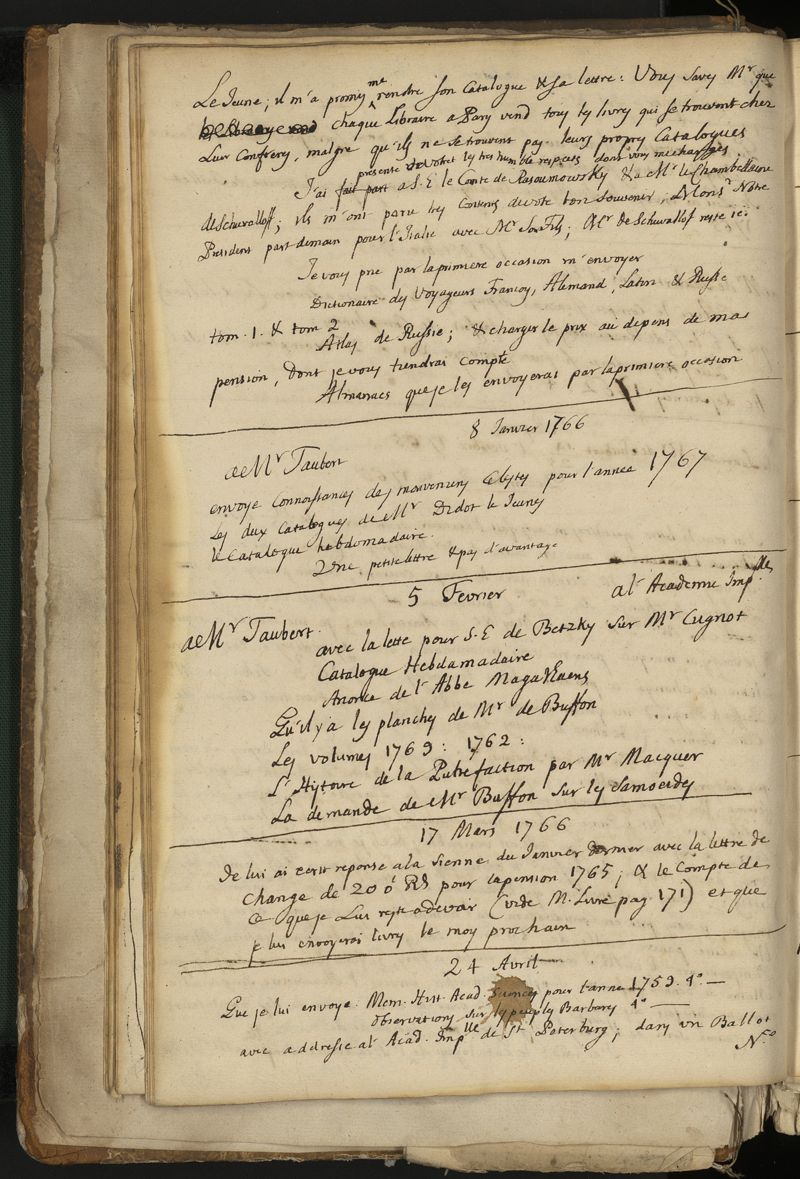 Le Jeune; il m'a promis me rendre son Catalogue & sa lettre: Vous savez Mr que
chaque Libraire a Paris vend tous les livres qui se trouvent chez
Leur Confreres, malgre qu'ils ne se trouvent pas leurs propres Catalogues
presente de votre les tres humble respects dont vous me charges
J'ai fait part a S. E. le Comte de Rasoumowsky & a Mr le Chambellane
de Schuvalloff; ils m'ont paru tres Contens de vote bon souvenir, Monsr Notre
President part demain pour l'Italie avec Mr son Fils; Mr de Schuvallof reste ici
Je vous prie par la premiere occasion m'envoyer
Dictionaire des Voyageurs Francois, Alemand, Latin & Russe
tom. 1. & tom 2
Atlas de Russie; & charger le prix au depens de mas
pension, dont je vous tiendrai Compte
Almanacs que je les envoyeras par la premiere occasion
8 Janvier 1766
a Mr Taubert
envoye Connoissances des mouvemens Celestes pour l'annee 1767
Les deux Catalogues de Mr Didot le Jeunes
le Catalogue hebdomadaire.
Une petite lettre & pas d'avantage
5 Fevrier al' Academie Imp.lle
a Mr Taubert.
avec la lette pour S. E de Betzky sur Mr Cugnot
Catalogue Hebdamadaire
Anonce de l' Abbe Magallaens
Qu'il y a les planches de Mr de Buffon
Les volumes 1769: 1762:
L' Hystoire de la Putrefaction par Mr Macquer
La demande de Mr Buffon sur les Samoerdes
17 Mars 1766
De lui ai ecrit reponse a la sienne du Janvier dernier avec la lettre de
Change de 200 Rs pour la pension 1765; & le Compte de
Ce que je Lui reste a devoir (vide M. Livre pag. 171) et que
je lui envoyerai livres le moy prochain
24 Avril
Que je lui envoye. Mem. Hist. Acad. Sciences pour l'anne 1759. 4° —
Observations sur les peuples Barbares 4° —
avec addresse al' Acad. Implle de St Petersburg; dans un Ballot
N.°